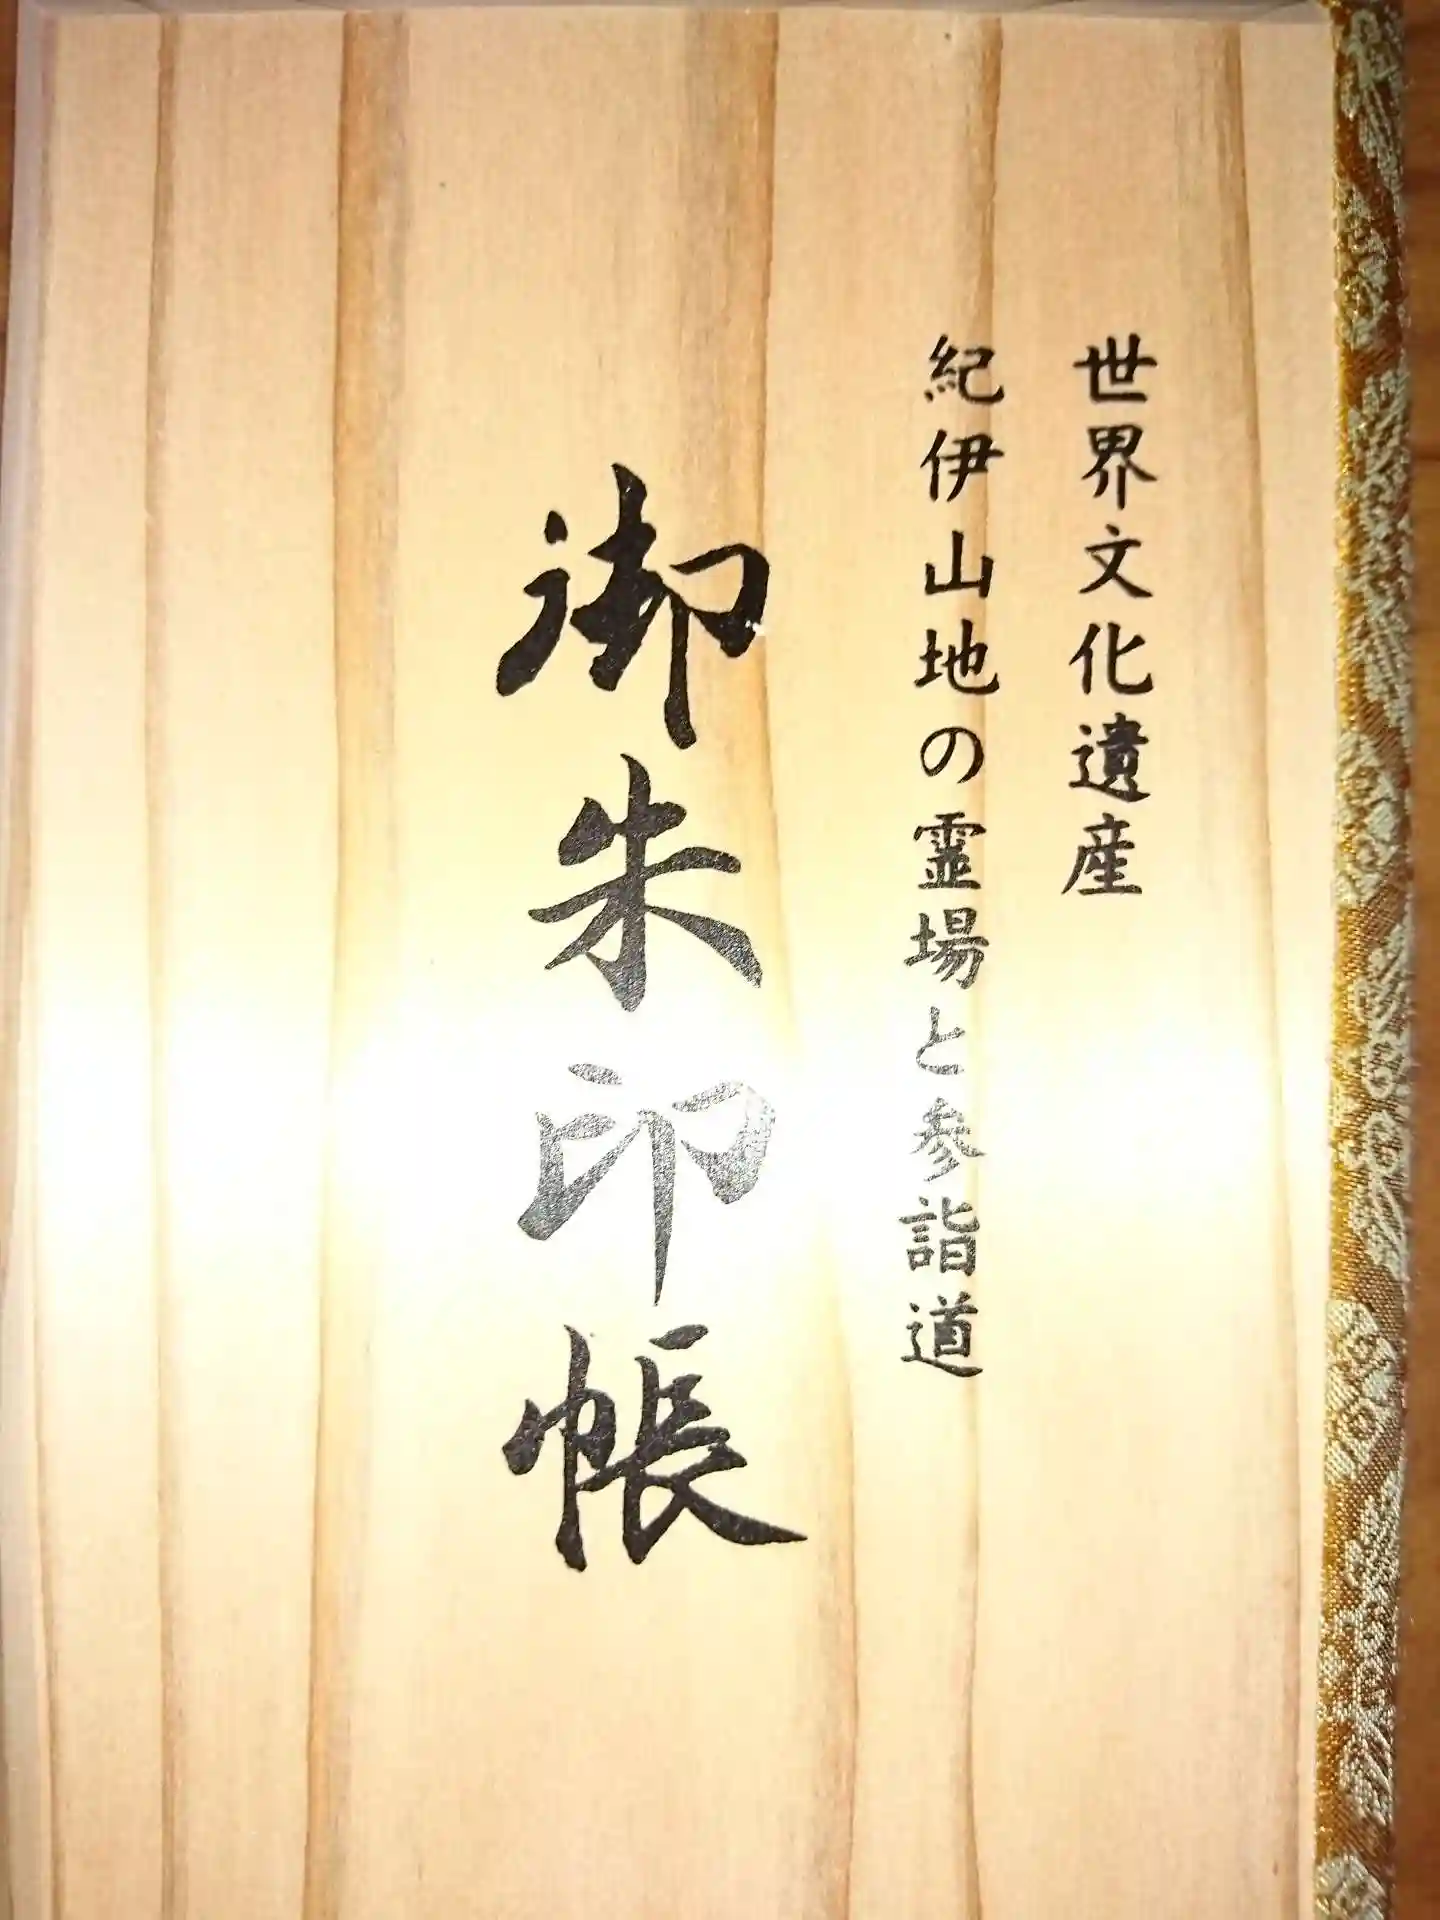 世界文化遺産
紀伊山地の霊場と参詣道
御朱印帳